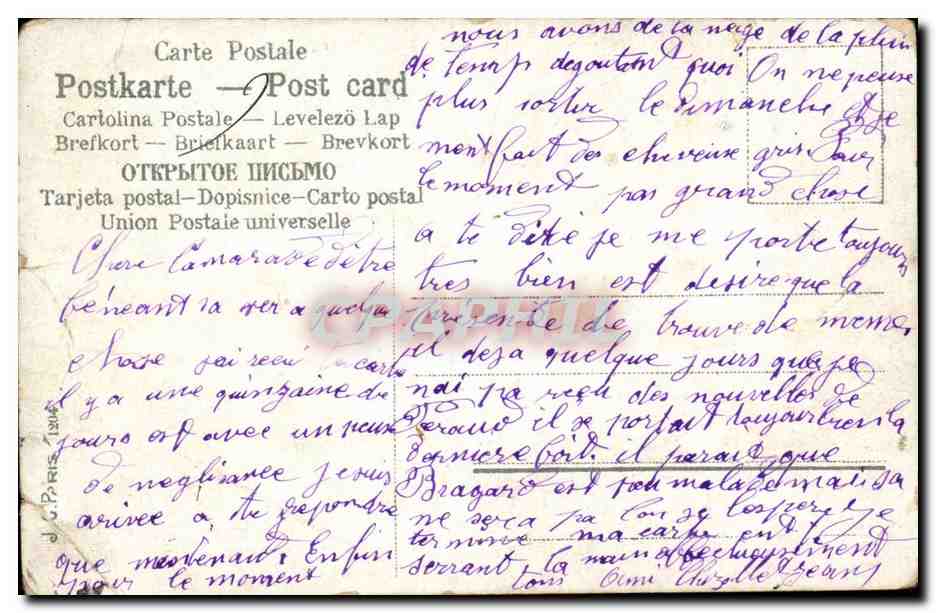 Carte Postale
Postkarte — Post card
Cartolina Postale — Levelező Lap
Brefkort — Briefkaart — Brevkort
ОТКРЫТОЕ ПИСЬМО
Tarjeta postal—Dopisnice—Carto postal
Union Postale universelle
Chere Camarade d'etre
chose jai recu la carte
il y a une quinzaine de
jours est avec un peuse
de neglisance je suis
arivee a te repondre
que maintenant. Enfin
pour le moment
nous avons de la neige de la pluie
de temp degoutant quoi On ne peuse
plus sortir le dimanche et je
mon fait des cheveuse gris. Pour
le moment pas grand chose
a te dire je me porte toujours
tres bien est desire que la
presende de trouve de meme,
il deja quelque jours que je
nai pa reçu des nouvelles de
il se portait toujours bien la
derniere foit. il parait que
Bragard est peu malade mais sa
ne sera pa lon je l'espere je
termine ma carte ent
serrant la main
ton ami
J.C. PARIS. 1204
CPAPHIL